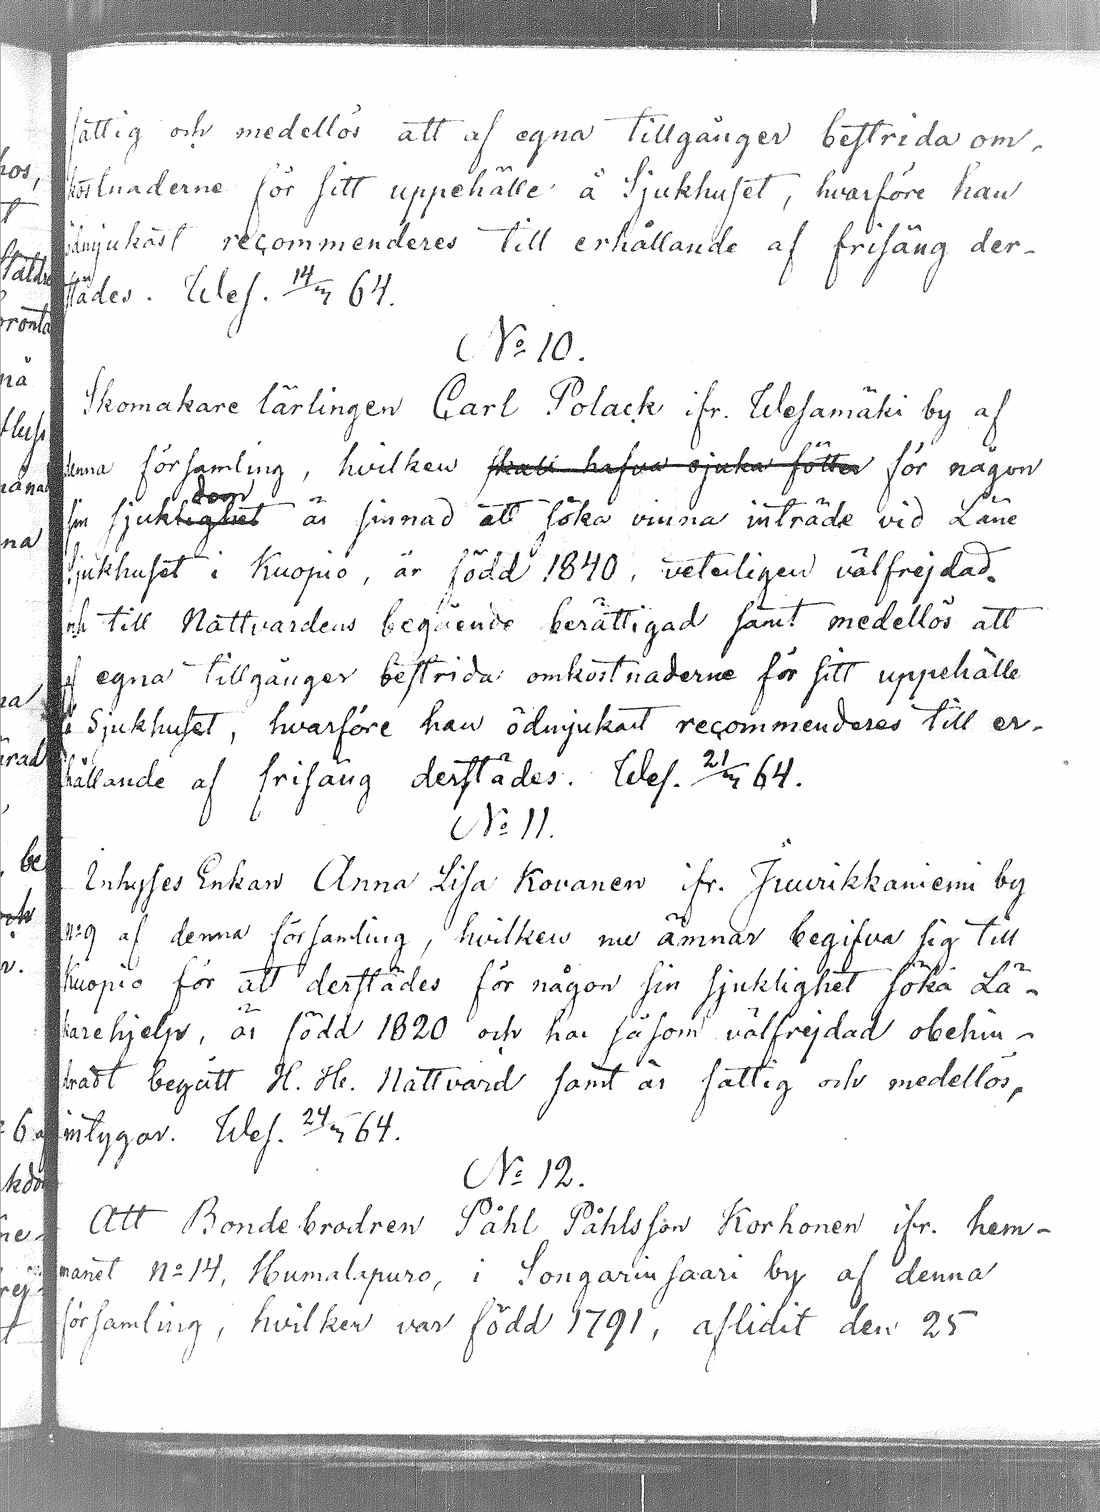 fattig och medellös att af egna tillgånger bestrida om-
kostnaderne för sitt uppehälle å Sjukhuset, hvarföre han
ödmjukast recommenderes till erhållande af frisäng der-
städes. Wes. 14/3 64.
No 10.
Skomakare lärlingen Carl Polack ifr. Wesamäki by af
denna församling, hvilken skall hafva sjuka fötter för någon
sin sjuklighet dom är sinnad att söka vinna inträde vid Läne
Sjukhuset i Kuopio, är född 1840, veterligen välfrejdad
och till Nattvardens begående berättigad samt medellös att
af egna tillgånger bestrida omkostnaderne för sitt uppehälle
å Sjukhuset, hvarföre han ödmjukast recommenderes till er-
hållande af frisäng derstädes. Wes. 21/3 64.
No 11.
Inhyses Enkan Anna Lisa Kovanen ifr. Juurikkaniemi by
No 9 af denna församling, hvilken nu ämnar begifva sig till
Kuopio för att derstädes för någon sin sjuklighet söka Lä-
karehjelp, är född 1820 och har såsom välfrejdad obehin-
dradt begått H. He. Nattvard samt är fattig och medellös,
intygar. Wes. 24/3 64.
No 12.
Att Bondebrodren Påhl Påhlsson Korhonen ifr. hem-
manet No 14, Humalapuro, i Songarinsaari by af denna
församling, hvilken var född 1791, aflidit den 25